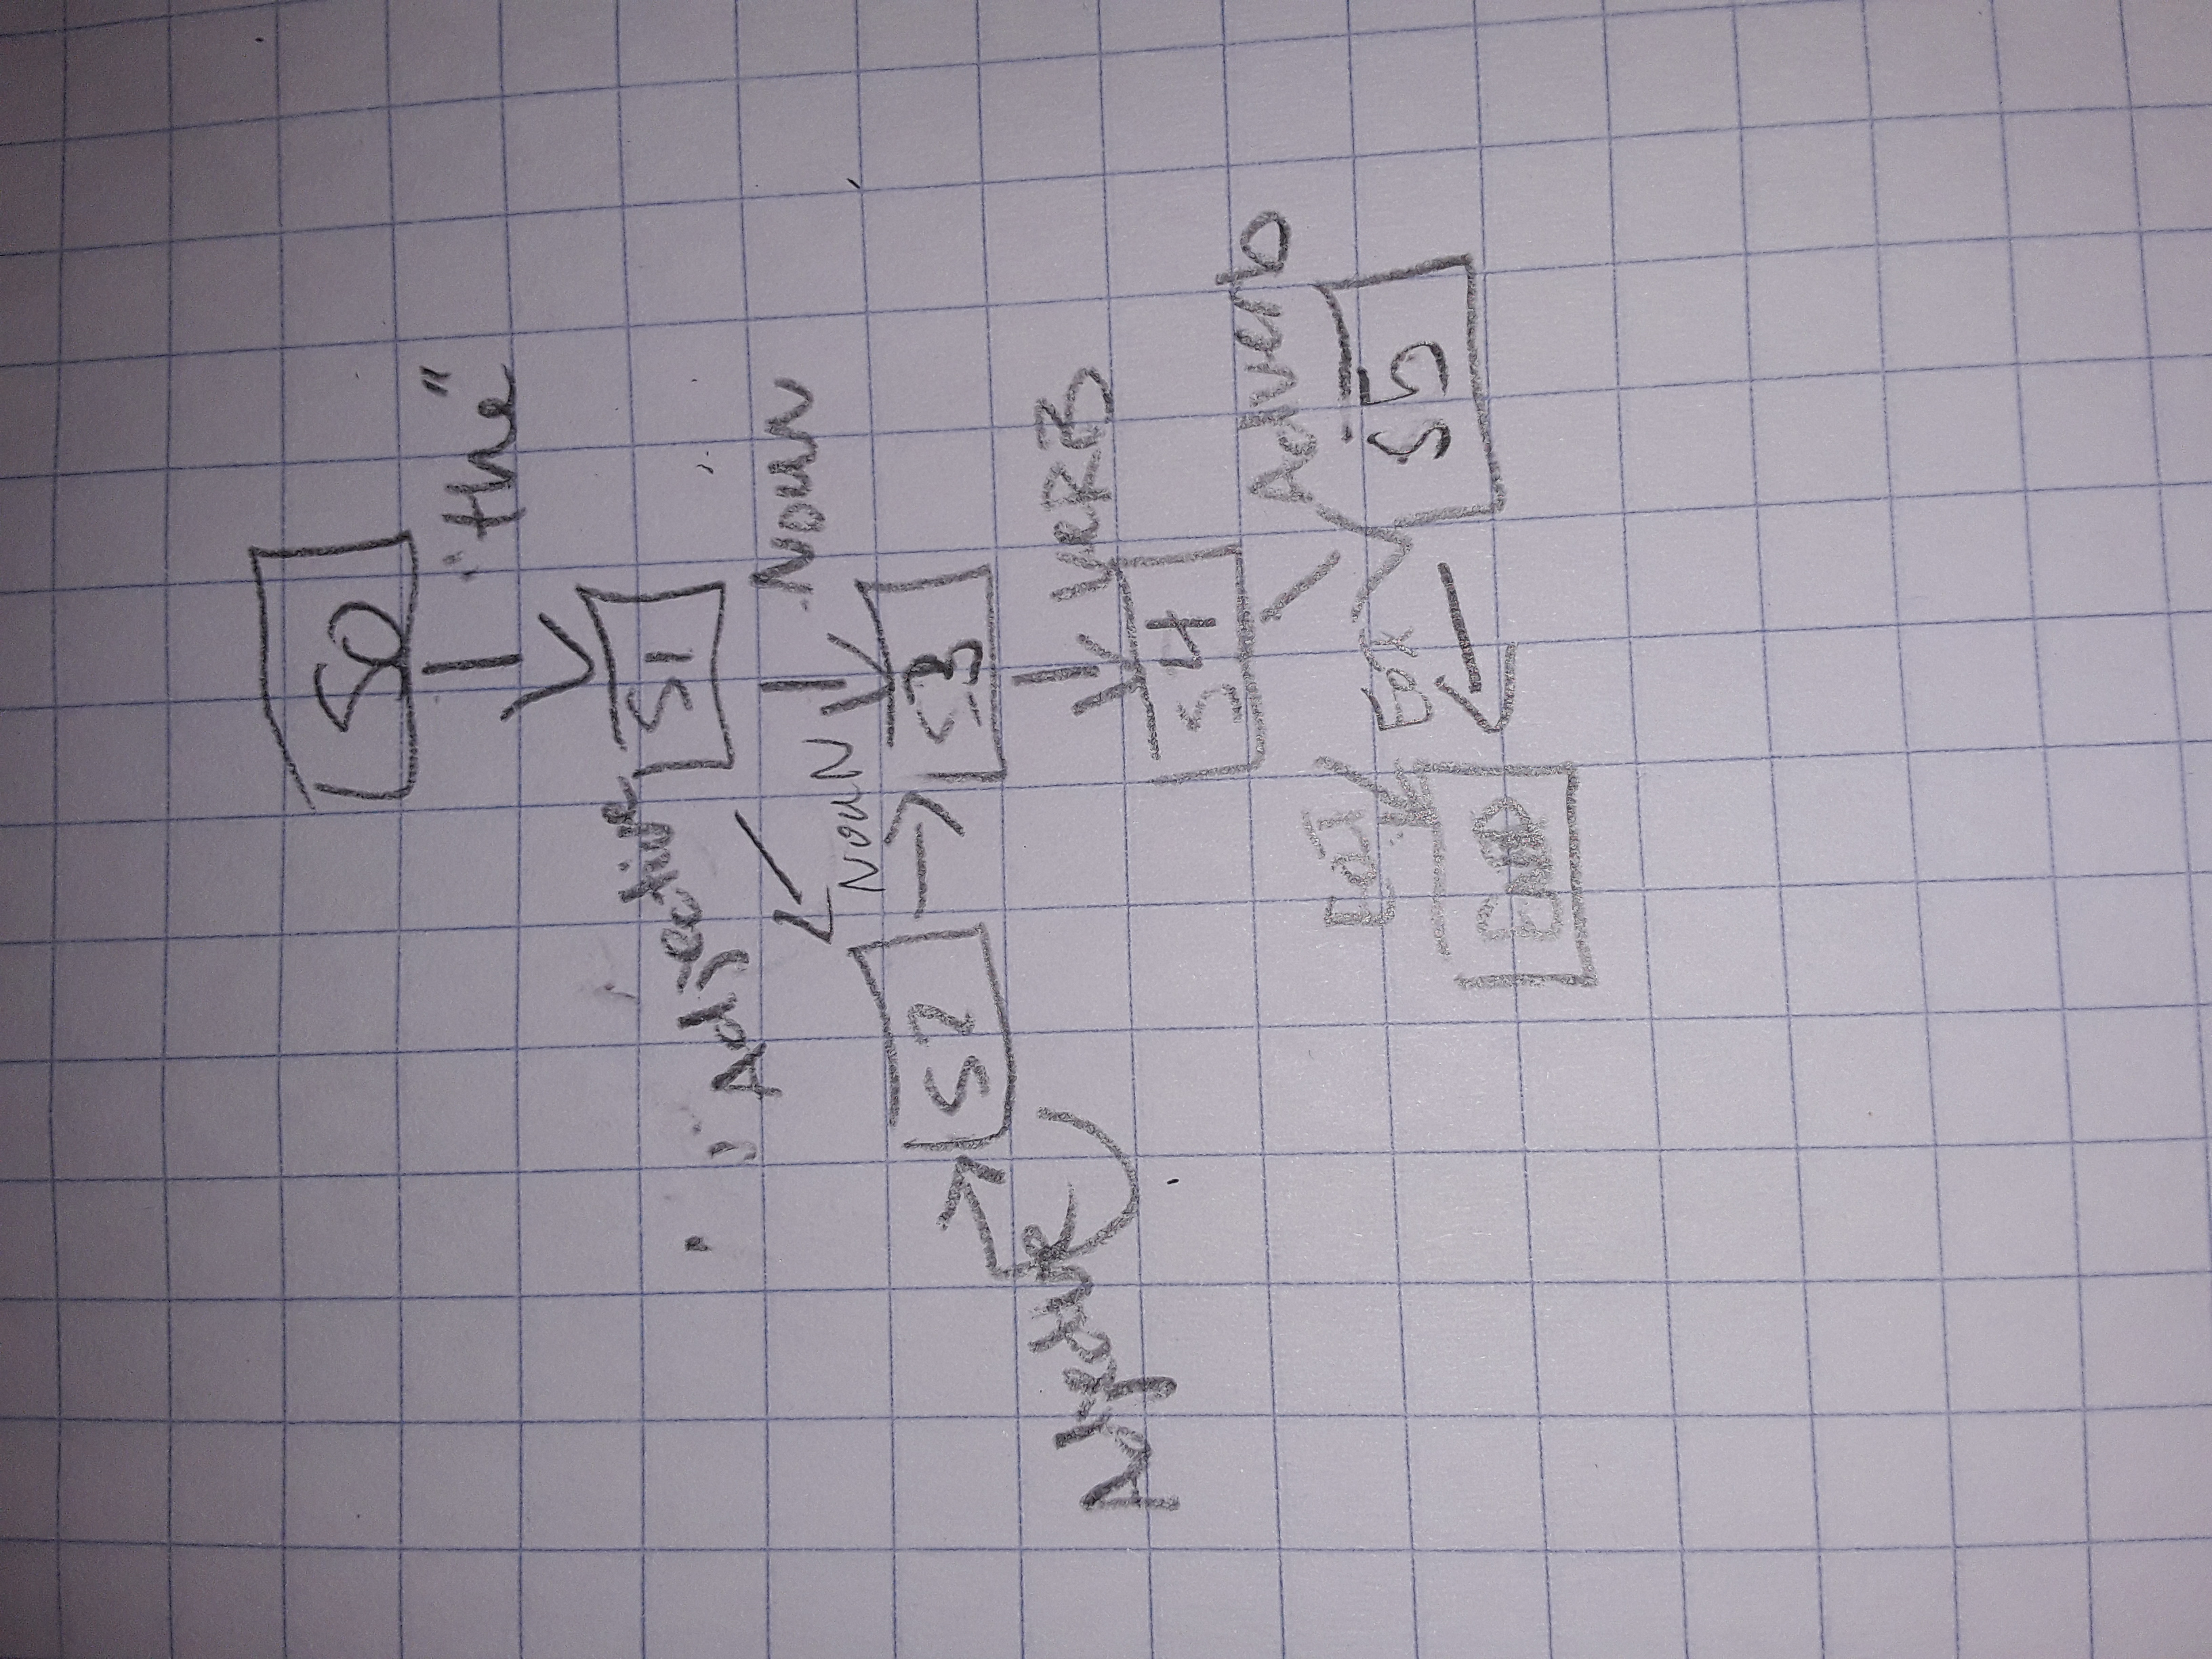 S0
"the"
"Adjective
S1
Noun
NouN
S2
S3
Adjective
VeRB
S4
Adverb
EOT
EOT
S5
END